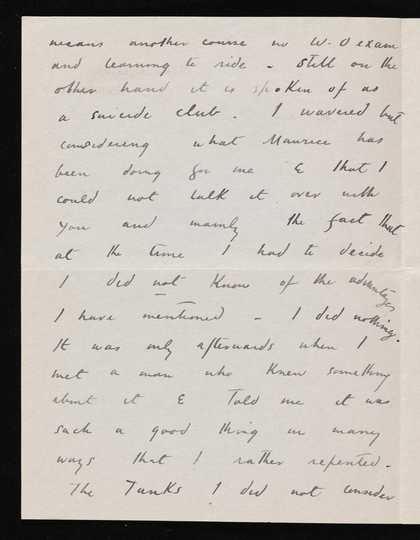 means another course no W.O exam
and learning to ride - Still on the
other hand it is spoken of as
a suicide club. I wavered but
considering what Maurice has
been doing for me & that I
could not talk it over with
you and mainly the fact that
at the time I had to decide
I did not know of the advantages
I have mentioned - I did nothing.
It was only afterwards when I
met a man who knew something
about it & Told me it was
such a good thing in many
ways that I rather repented.
The Tanks I did not consider